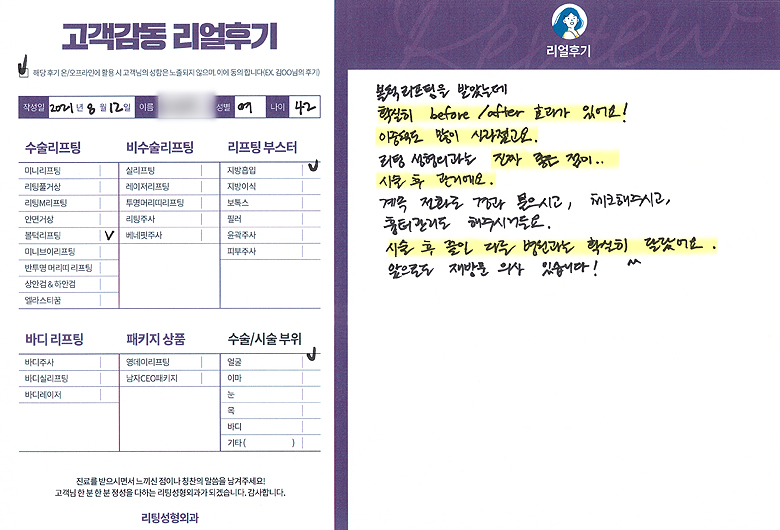 고객감동 리얼후기
해당 후기 온/오프라인에 활용 시 고객님의 성함은 노출되지 않으며, 이에 동의 합니다(EX. 김OO님의 후기)
작성일 2021 년 8 월 12 일 이름 성별 여 나이 42
수술리프팅 비수술리프팅 리프팅 부스터
미니리프팅 실리프팅 지방흡입
리팅풀거상 레이저리프팅 지방이식
리팅M리프팅 투명머리띠리프팅 보톡스
안면거상 리팅주사 필러
볼턱리프팅 베네핏주사 윤곽주사
미니브이리프팅 피부주사
반투명 머리띠 리프팅
상안검 & 하안검
엘라스티꿈
바디 리프팅 패키지 상품 수술/시술 부위
바디주사 영데이리프팅 얼굴
바디실리프팅 남자CEO패키지 이마
바디레이저 눈
목
바디
기타 ( )
진료를 받으시면서 느끼신 점이나 칭찬의 말씀을 남겨주세요!
고객님 한 분 한 분 정성을 다하는 리팅성형외과가 되겠습니다. 감사합니다.
리팅성형외과
Review
리얼후기
볼턱리프팅을 받았는데
확실히 before / after 효과가 있어요!
이중턱도 많이 사라졌고요.
리팅 성형외과는 진짜 좋은 점이..
시술 후 관리예요.
계속 전화로 경과 물으시고, 체크해주시고,
흉터관리도 해주시거든요.
시술 후 끝인 다른 병원과는 확실히 달랐어요.
앞으로도 재방문 의사 있습니다! ^^